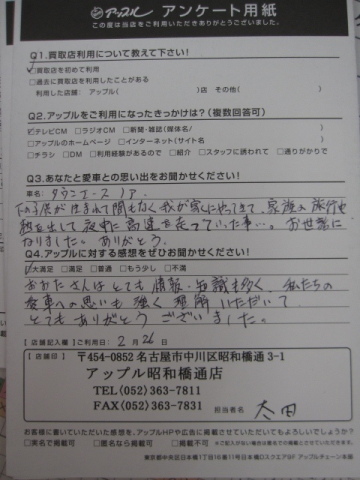 アップル アンケート用紙
この度は当店をご利用いただきありがとうございました。
Q1.買取店利用について教えて下さい!
☑買取店を初めて利用
□過去に買取店を利用したことがある
利用した店舗: アップル( )店 その他( )
Q2.アップルをご利用になったきっかけは?(複数回答可)
☑テレビCM □ラジオCM □新聞・雑誌(媒体名/ )
□アップルのホームページ □インターネット(サイト名 )
□チラシ □DM □利用経験があるので □紹介 □スタッフに誘われて □通りがかりで
Q3.あなたと愛車との思い出をお聞かせください!
車名: タウンエースノア.
下の子供が生まれて間もなく我が家にやってきて、家族の旅行や
夜中に高速を走っていた事…。お世話に
なりました。ありがとう。
Q4.アップルに対する感想をぜひお聞かせください!
☑大満足 □満足 □普通 □もう少し □不満
おおたさんはとても情報・知識も多く、私たちの
愛車への思いも強く理解いただいて
とてもありがとうございました。
【店舗記入欄】ご利用日: 2月26日
【店舗印】
〒454-0852 名古屋市中川区昭和橋通 3-1
アップル昭和橋通店
TEL(052)363-7811
FAX(052)363-7831
担当者名 太田
お客様に書いていただいた感想を、アップルHPや広告に掲載させていただいてもよろしいでしょうか?
□実名で掲載可 □匿名なら掲載可 □掲載不可 ※ご記入がない場合は匿名での掲載とさせていただきます。
東京都中央区日本橋1丁目16番11号日本橋Dスクエア8F アップルチェーン本部